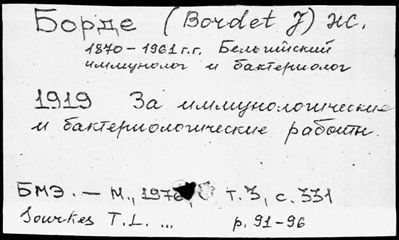 Борде (Bordet J) Ж.
1870-1961 г.г. Бельгийский
иммунолог и бактериолог
1919 За иммунологические
и бактериологические работы.
БМЭ. - М., т. 3, с. 331
Sourkes T.L. ... p. 91-96